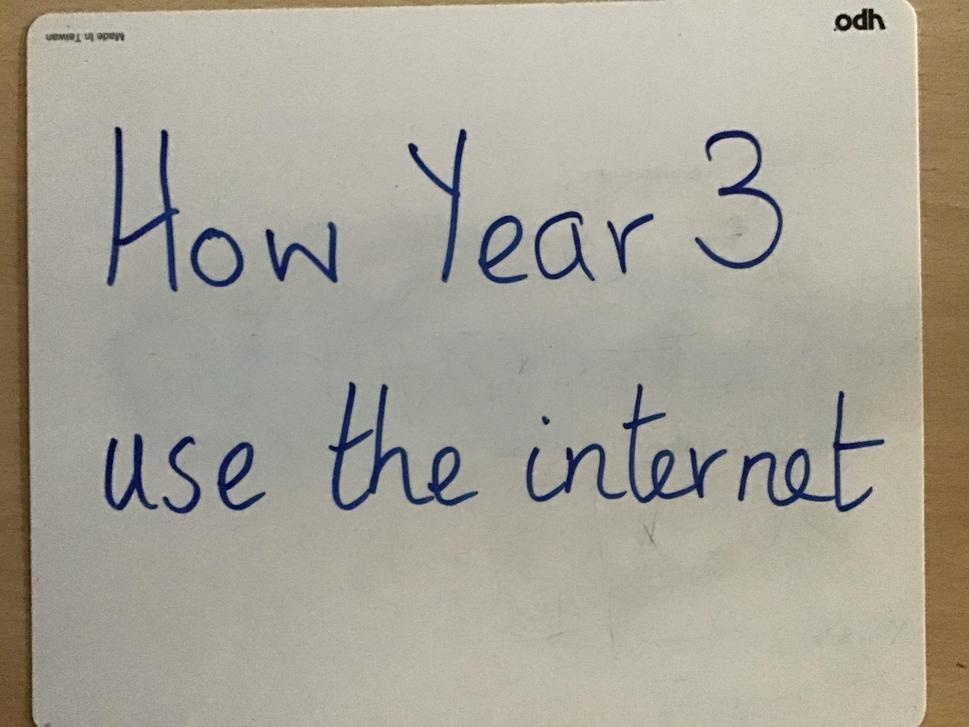 Made in Taiwan
How Year 3
use the internet